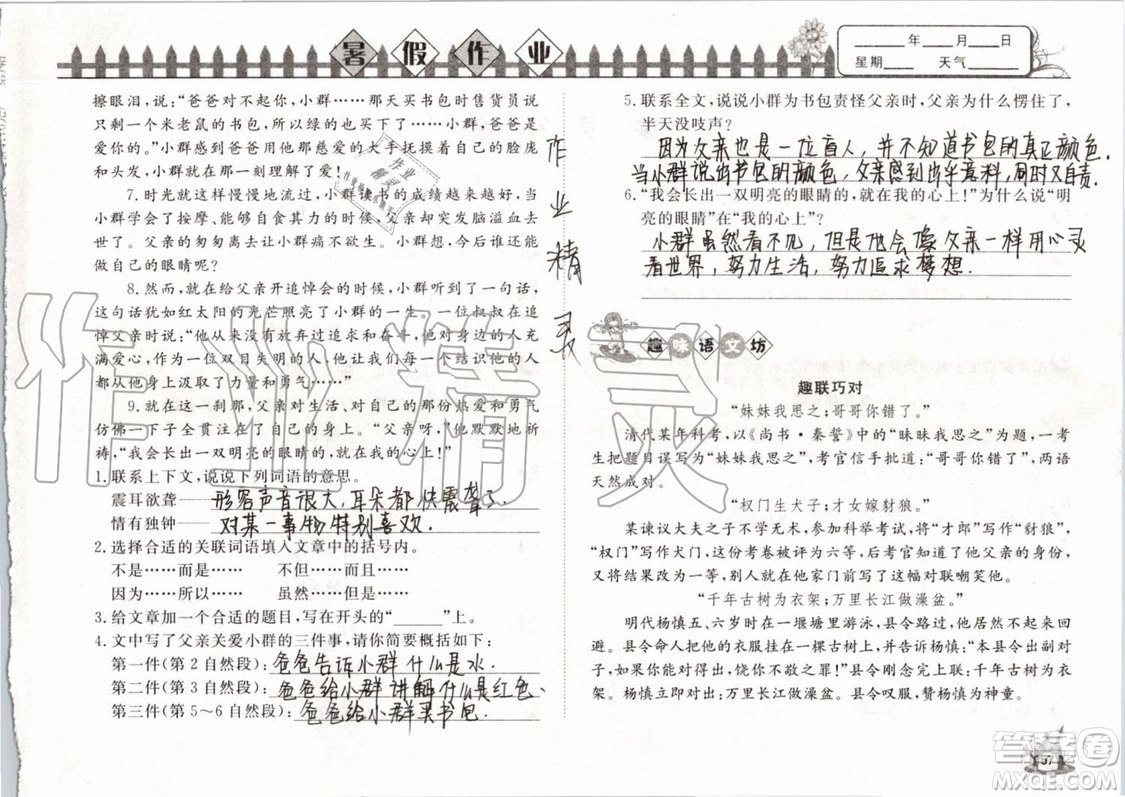 暑假作业
____年____月____日
星期____ 天气____
擦眼泪，说：“爸爸对不起你，小群……那天买书包时售货员说
只剩一个米老鼠的书包，所以绿的也买不到了……小群，爸爸是
爱你的。”小群感到爸爸用他那慈爱的大手抚摸着自己的脸庞
和头发，小群就在那一刻理解了爱！
7.时光就这样慢慢地流过，小群的成绩越来越好，当
小群学会了按摩、能够自食其力的时候，父亲却患了重病离
去。父亲的匆匆离去让小群痛不欲生。小群想，今后谁还能
做自己的眼睛呢？
8.然而，就在给父亲开追悼会的时候，小群听到了一句话，
这句话犹如红太阳的光芒照亮了小群的一生。一位叔叔在追
悼父亲时说：“他虽然没有见过光明，但他对身边的人充
满爱心，作为一位双目失明的人，他从来没有抱怨，每个人
都从他身上感受到力量和勇气……”
9.就在这一刹那，父亲对生活、对自己的那份热爱和勇气
仿佛一下子全贯注在了小群身上。“父亲呀，”他默默地祈
祷，“我会长出一双明亮的眼睛的，就在我的心上！”
1.联系上下文，说说下列词语的意思。
震耳欲聋——形容声音很大，耳朵都快震聋了.
情有独钟——对某一事物特别喜欢.
2.选择合适的关联词语填入文章中的括号内。
不是……而是…… 不但……而且……
因为……所以…… 虽然……但是……
3.给文章加一个合适的题目，写在开头的“______”上。
4.文中写了父亲关爱小群的三件事，请你简要概括如下：
第一件(第2自然段)：爸爸告诉小群什么是水.
第二件(第3自然段)：爸爸给小群讲解什么是红色、
第三件(第5~6自然段)：爸爸给小群买书包.
作业精灵
5.联系全文，说说小群为书包责怪父亲时，父亲为什么愣住了，
半天没吱声？
因为父亲也是一位盲人，并不知道书包的真正颜色.
当小群说出书包的颜色，父亲感到出乎意料，同时又自责.
6.“我会长出一双明亮的眼睛的，就在我的心上！”为什么说“明
亮的眼睛”在“我的心上”？
小群虽然看不见，但是他会像父亲一样用心灵
看世界，努力生活，努力追求梦想.
趣味语文坊
趣联巧对
“妹妹我思之；哥哥你错了。”
清代某年科考，以《尚书·秦誓》中的“昧昧我思之”为题，一考
生把题目误写为“妹妹我思之”，考官信手批道：“哥哥你错了”，两语
天然成对。
“权门生犬子；才女嫁豺狼。”
某谏议大夫之子不学无术，参加科举考试，将“才郎”写作“豺狼”，
“权门”写作犬门，这份考卷被评为六等，后考官知其他父亲的身份，
又将结果改为一等，别人就在他家门前写了这幅对联嘲笑他。
“千年古树为衣架；万里长江做澡盆。”
明代杨慎五、六岁时在一堰塘里游泳，县令路过，他也不起来回
避。县令命人把他的衣服挂在一棵古树上，并告诉杨慎：“本县令出副对
子，如果你能对得出，饶你不敬之罪！”县令刚念完上联：千年古树为衣
架。杨慎立即对出：万里长江做澡盆。县令叹服，赞杨慎为神童。
57
作业精灵
答案卷
MXQE.COM